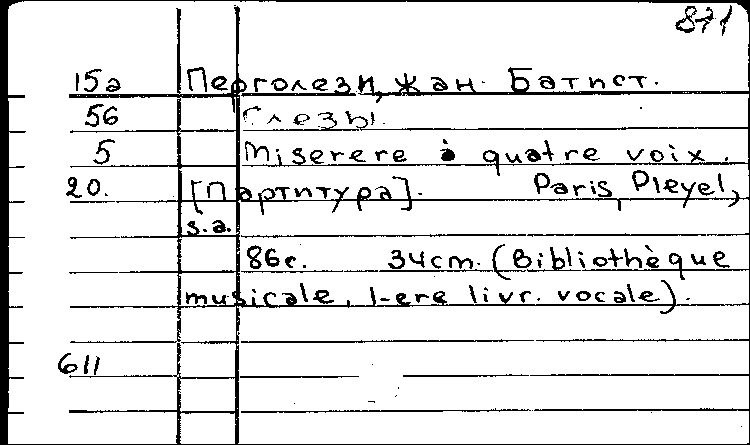 871
15а Перголези, Жан Батист.
56 Слезы.
5 Miserere à quatre voix.
20. [Партитура]. Paris, Pleyel,
s.a.
86с. 34cm. (Bibliothèque
musicale, 1-ere livr. vocale).
611